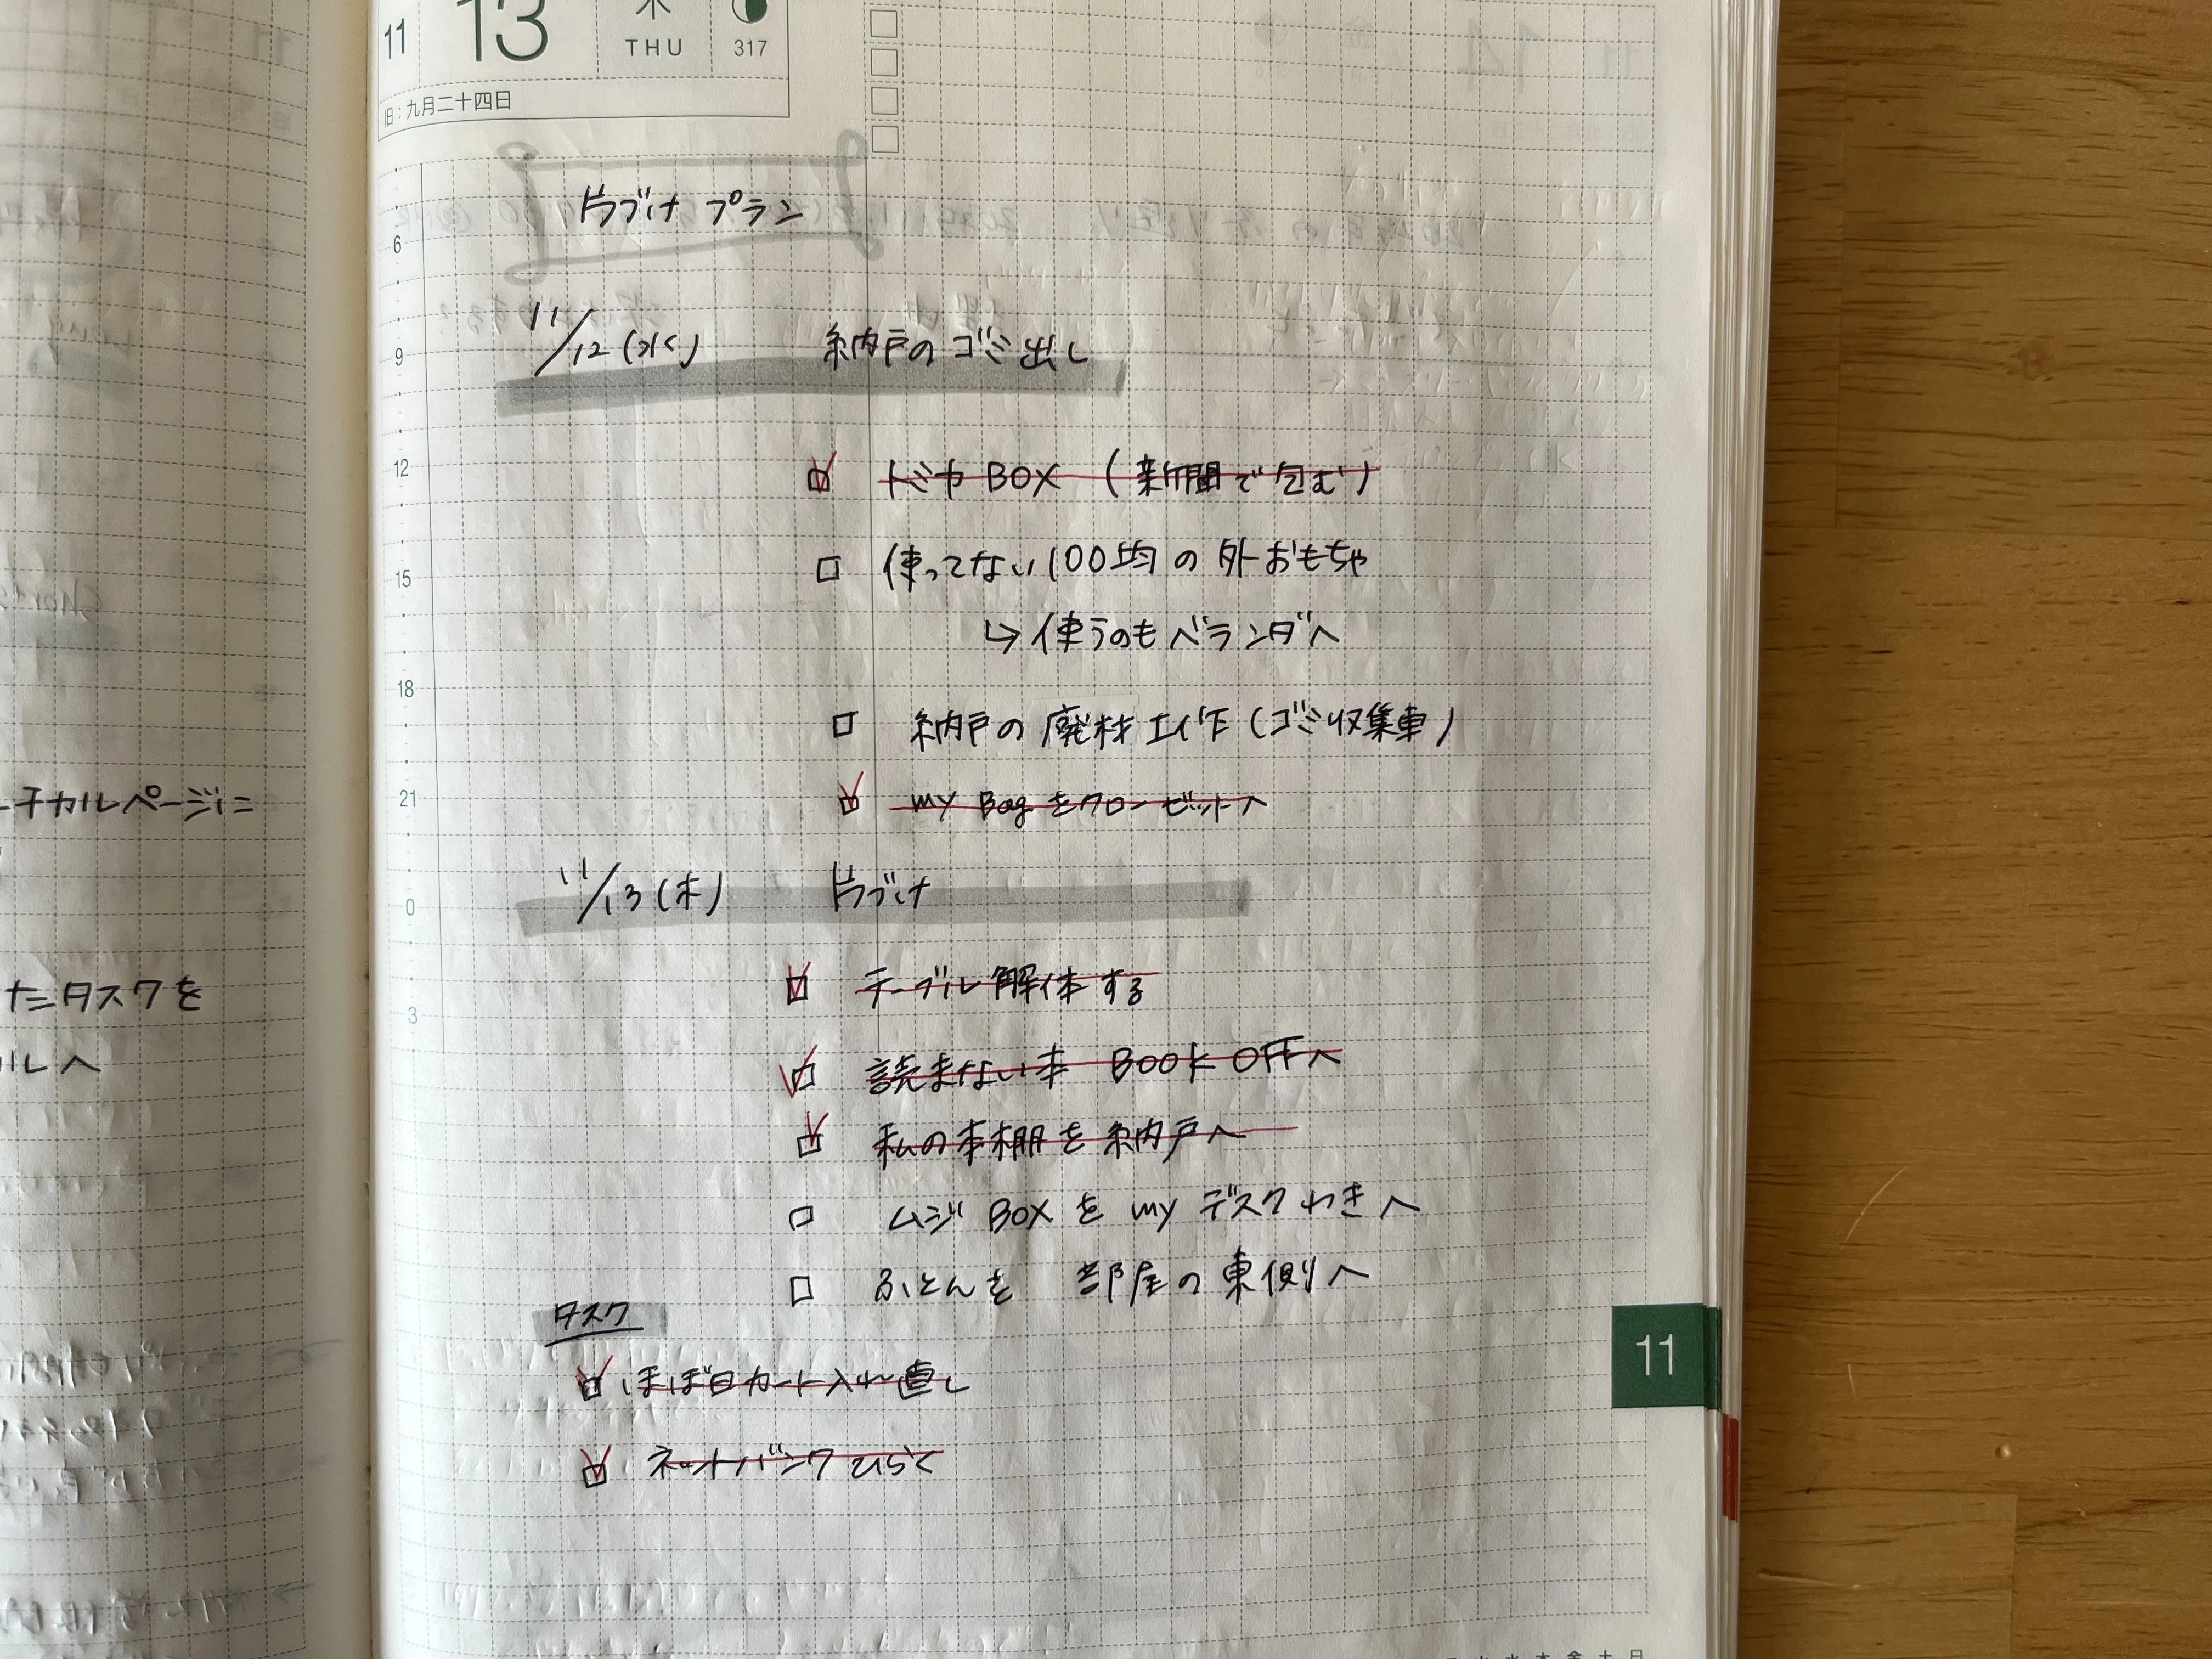 11 13 木 THU 317
旧:九月二十四日
片づけ プラン
6
11/12(水) 納戸のゴミ出し
9
12
トミカBOX(新聞で包む)
使ってない100均の外おもちゃ
15
↳ 使うのもベランダへ
18
納戸の廃材工作(ゴミ収集車)
my Bagをクローゼットへ
21
11/13(木) 片づけ
0
テーブル解体する
3
読まない本 BOOK OFFへ
私の本棚を納戸へ
ムジBOXをmyデスクわきへ
ふとんを 部屋の東側へ
タスク
ほぼ日カート入れ直し
ネットバンクひらく
11
ーチカルページに
たタスクを
ルへ